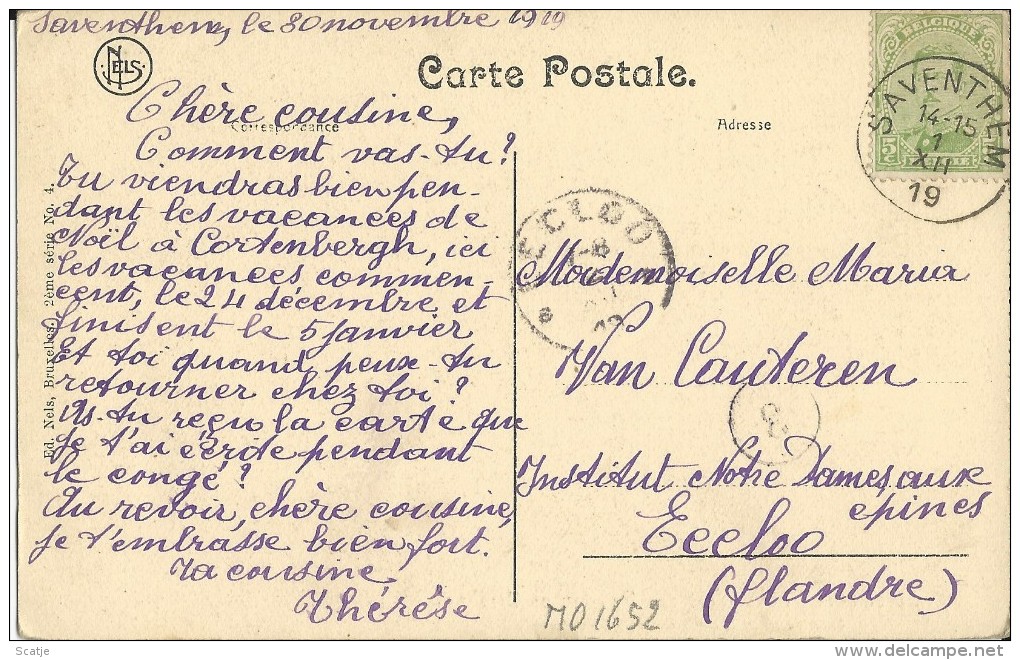 Saventhem, le 30 novembre 1919
NELS
Carte Postale.
Correspondance
Adresse
BELGIQUE
5c
SAVENTHEM
14-15
1
XII
19
Chère cousine,
Comment vas-tu?
Tu viendras bien pen-
dant les vacances de
Noël à Cortenbergh, ici
les vacances commen-
cent, le 24 décembre et
finisent le 5 janvier
Et toi quand peux-tu
retourner chez toi?
As-tu reçu la carte que
je t'ai écrite pendant
le congé?
Au revoir, chère cousine,
je t'embrasse bien fort.
Ta cousine
Thérèse
Ed. Nels, Bruxelles. 2ème série No. 4.
EECLOO
Mademoiselle Maria
Van Cauteren
Institut Notre Dames aux
épines
Eecloo
(flandre)
MO1652
Scatje
delcampe.net